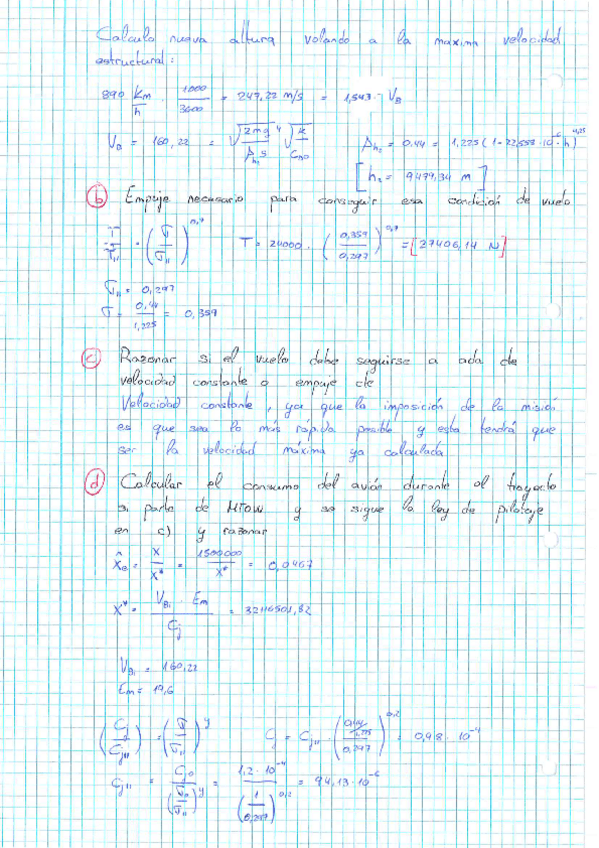 Calculo nueva altura volando a la maxima velocidad
estructural:
890 Km/h · 1000/3600 = 247,22 m/s = 1,543 · V_B
V_B = 160,22 = √(2mg/ρ_h₂ S) ⁴√(k/C_D0)   ρ_h₂ = 0.44 = 1,225 (1 - 22,558 · 10^-6 · h)^4,25
[h₂ = 9479,34 m]
b) Empuje necesario para conseguir esa condición de vuelo
T/T₁₁ = (σ/σ₁₁)^0,7   T = 24000 · (0,359/0,297)^0,7 = [27406,14 N]
σ₁₁ = 0,297
σ = 0,44/1,225 = 0,359
c) Razonar si el vuelo debe seguirse a ada de
velocidad constante o empuje cte
Velocidad constante, ya que la imposición de la misión
es que sea lo más rapido posible y esta tendrá que
ser la velocidad máxima ya calculada
d) Calcular el consumo del avión durante el trayecto
si parte de MTOW y se sigue la ley de pilotaje
en c) y razonar
x̂_B = x/x* = 1500000/x* = 0,0467
x* = V_Bi · E_m / C_j = 32116501,82
V_Bi = 160,22
E_m = 19,6
(C_j/C_j₁₁) = (σ/σ₁₁)^y   C_j = C_j₁₁ · ((0,44/1,225)/0,297)^0,2 = 0,98 · 10^-4
C_j₁₁ = C_j0/(σ₀/σ₁₁)^y = 1,2 · 10^-4/(1/0,297)^0,2 = 94,13 · 10^-6